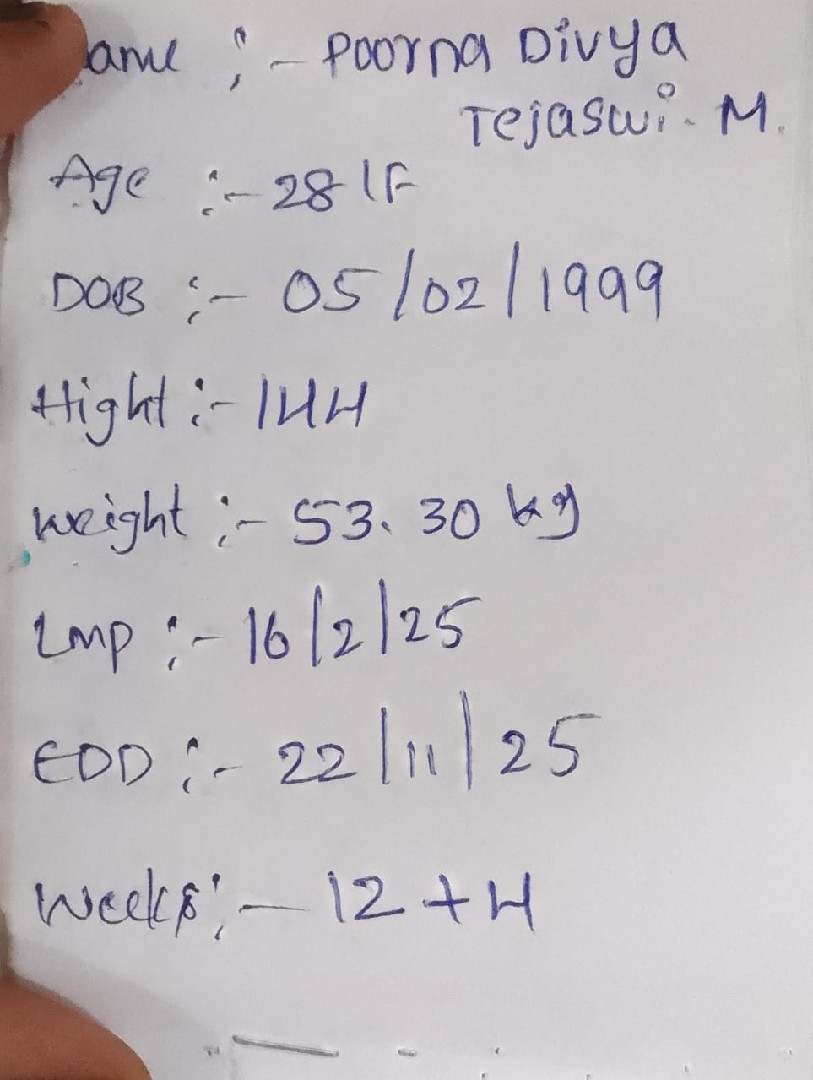 ame :- Poorna Divya
Tejaswi. M.
Age :- 28/F
DOB :- 05/02/1999
Hight :- 144
weight :- 53.30 kg
LMP :- 16/2/25
EDD :- 22/11/25
Weeks :- 12+4